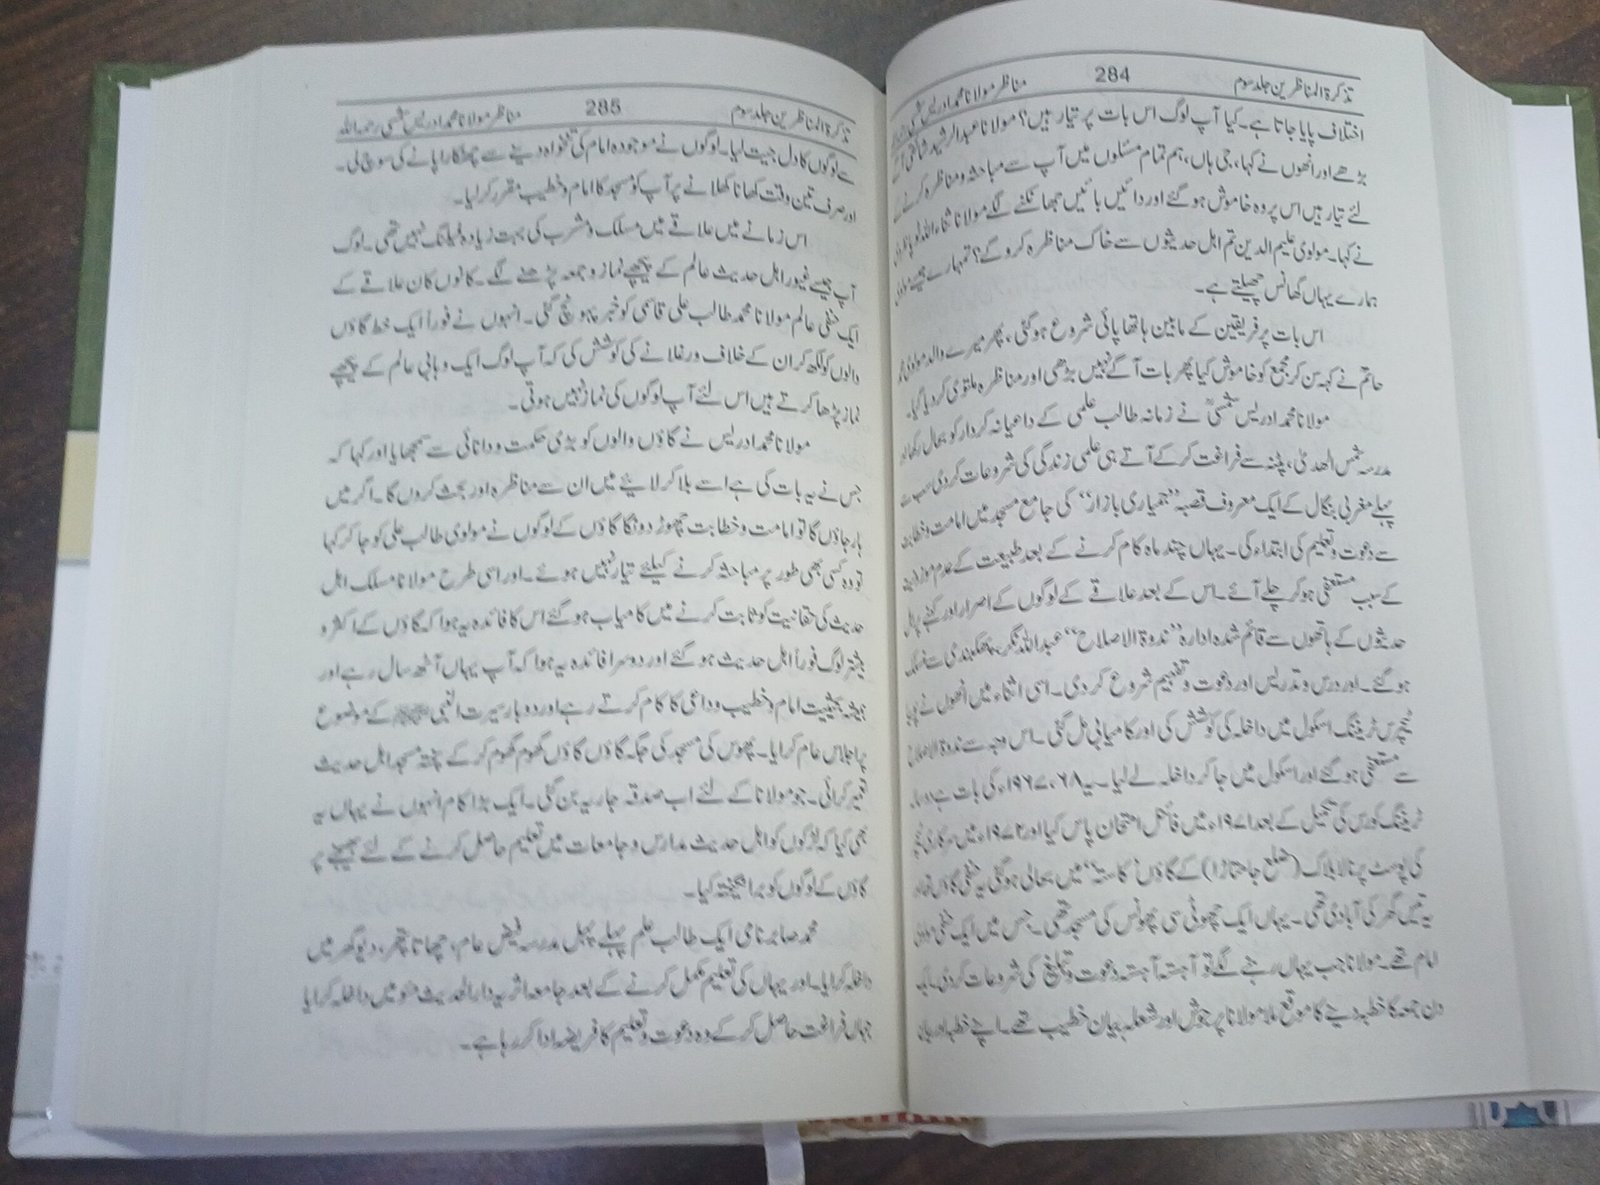 تذکرۃ المناظرین جلد سوم 284 مناظر مولانا محمد ادریس شمسی
اختلاف پایا جاتا ہے۔ کیا آپ لوگ اس بات پر تیار ہیں؟ مولانا عبدالرشید شائقی آگے
بڑھے اور انھوں نے کہا، جی ہاں، ہم تمام مسئلوں میں آپ سے مباحثہ و مناظرہ کرنے کے
لئے تیار ہیں اس پر وہ خاموش ہو گئے اور دائیں بائیں جھانکنے لگے مولانا ثناء اللہ
نے کہا۔ مولوی علیم الدین تم اہل حدیثوں سے خاک مناظرہ کرو گے؟ تمہارے جیسے مولوی
ہمارے یہاں گھانس چھیلتے ہے۔
اس بات پر فریقین کے مابین ہاتھا پائی شروع ہو گئی، پھر میرے والد مولوی محمد
حاتم نے کہہ سن کر مجمع کو خاموش کیا پھر بات آگے نہیں بڑھی اور مناظرہ ملتوی کر دیا گیا۔
مولانا محمد ادریس شمسیؒ نے زمانہ طالب علمی کے داعیانہ کردار کو بحال رکھا اور
مدرسہ شمس الھدیٰ، پٹنہ سے فراغت کر کے آتے ہی علمی زندگی کی شروعات کر دی سب سے
پہلے مغربی بنگال کے ایک معروف قصبہ "جمیاری بازار" کی جامع مسجد میں امامت و خطابت
سے دعوت و تعلیم کی ابتداء کی۔ یہاں چند ماہ کام کرنے کے بعد طبیعت کے عدم موزونیت
کے سبب مستعفی ہو کر چلے آئے۔ اس کے بعد علاقے کے لوگوں کے اصرار اور کہنے پر اہل
حدیثوں کے ہاتھوں سے قائم شدہ ادارہ "ندوۃ الاصلاح" عبداللہ نگر، سے منسلک
ہو گئے۔ اور درس و تدریس اور دعوت و تفہیم شروع کر دی۔ اسی اثناء میں انھوں نے
ٹیچرس ٹریننگ اسکول میں داخلہ کی کوشش کی اور کامیابی مل گئی۔ اس وجہ سے ندوۃ الاصلاح
سے مستعفی ہو گئے اور اسکول میں جا کر داخلہ لے لیا۔ یہ ۶۸، ۱۹۶۷ء کی بات ہے دو سالہ
ٹریننگ کورس کی تکمیل کے بعد ۱۹۷۱ء میں فائنل امتحان پاس کیا اور ۱۹۷۲ء میں سرکاری ٹیچر
کی پوسٹ پر نالا بلاک (ضلع جامتاڑا) کے گاؤں "کاستہ" میں بحالی ہو گئی یہ حنفی گاؤں تھا اور
یہ تیس گھر کی آبادی تھی۔ یہاں ایک چھوٹی سی پھونس کی مسجد تھی۔ جس میں ایک حنفی مولوی
امام تھے۔ مولانا جب یہاں رہنے لگے تو آہستہ آہستہ دعوت و تبلیغ کی شروعات کر دی۔ ایک
دن جمعہ کا خطبہ دینے کا موقع ملا مولانا پر جوش اور شعلہ بیان خطیب تھے۔ اپنے خطبہ اور بیان
تذکرۃ المناظرین جلد سوم 285 مناظر مولانا محمد ادریس شمسی رحمہ اللہ
سے لوگوں کا دل جیت لیا۔ لوگوں نے موجودہ امام کی تنخواہ دینے سے چھٹکارا پانے کی سوچ لی۔
اور صرف تین وقت کھانا کھلانے پر آپ کو مسجد کا امام و خطیب مقرر کر لیا۔
اس زمانے میں علاقے میں مسلک و مشرب کی بہت زیادہ فیلنگ نہیں تھی۔ لوگ
آپ جیسے غیور اہل حدیث عالم کے پیچھے نماز و جمعہ پڑھنے لگے۔ کانوں کان علاقے کے
ایک حنفی عالم مولانا محمد طالب علی قاسمی کو خبر پہونچ گئی۔ انہوں نے فوراً ایک خط گاؤں
والوں کو لکھ کر ان کے خلاف ورغلانے کی کوشش کی کہ آپ لوگ ایک وہابی عالم کے پیچھے
نماز پڑھا کرتے ہیں اس لئے آپ لوگوں کی نماز نہیں ہوتی۔
مولانا محمد ادریس نے گاؤں والوں کو بڑی حکمت و دانائی سے سمجھایا اور کہا کہ
جس نے یہ بات کی ہے اسے بلا کر لائیے میں ان سے مناظرہ اور بحث کروں گا۔ اگر میں
ہار جاؤں گا تو امامت و خطابت چھوڑ دونگا گاؤں کے لوگوں نے مولوی طالب علی کو جا کر کہا
تو وہ کسی بھی طور پر مباحثہ کرنے کیلئے تیار نہیں ہوئے۔ اور اسی طرح مولانا مسلک اہل
حدیث کی حقانیت کو ثابت کرنے میں کامیاب ہو گئے اس کا فائدہ یہ ہوا کہ گاؤں کے اکثر و
بیشتر لوگ فوراً اہل حدیث ہو گئے اور دوسرا فائدہ یہ ہوا کہ آپ یہاں آٹھ سال رہے اور
ہمیشہ بحیثیت امام و خطیب و داعی کا کام کرتے رہے اور دو بار سیرت النبی ﷺ کے موضوع
پر اجلاس عام کرایا۔ پھوس کی مسجد کی جگہ گاؤں گاؤں گھوم گھوم کر کے پختہ مسجد اہل حدیث
تعمیر کرائی۔ جو مولانا کے لئے اب صدقہ جاریہ بن گئی۔ ایک بڑا کام انہوں نے یہاں یہ
بھی کیا کہ لڑکوں کو اہل حدیث مدارس و جامعات میں تعلیم حاصل کرنے کے لئے بھیجنے پر
گاؤں کے لوگوں کو برانگیختہ کیا۔
محمد صابر نامی ایک طالب علم پہلے پہل مدرسہ فیض عام، چھاتا پتھر، دیوگھر میں
داخلہ کرایا۔ اور یہاں کی تعلیم مکمل کرنے کے بعد جامعہ اثریہ دار الحدیث مئو میں داخلہ کرایا
جہاں فراغت حاصل کر کے وہ دعوت و تعلیم کا فریضہ ادا کر رہا ہے۔